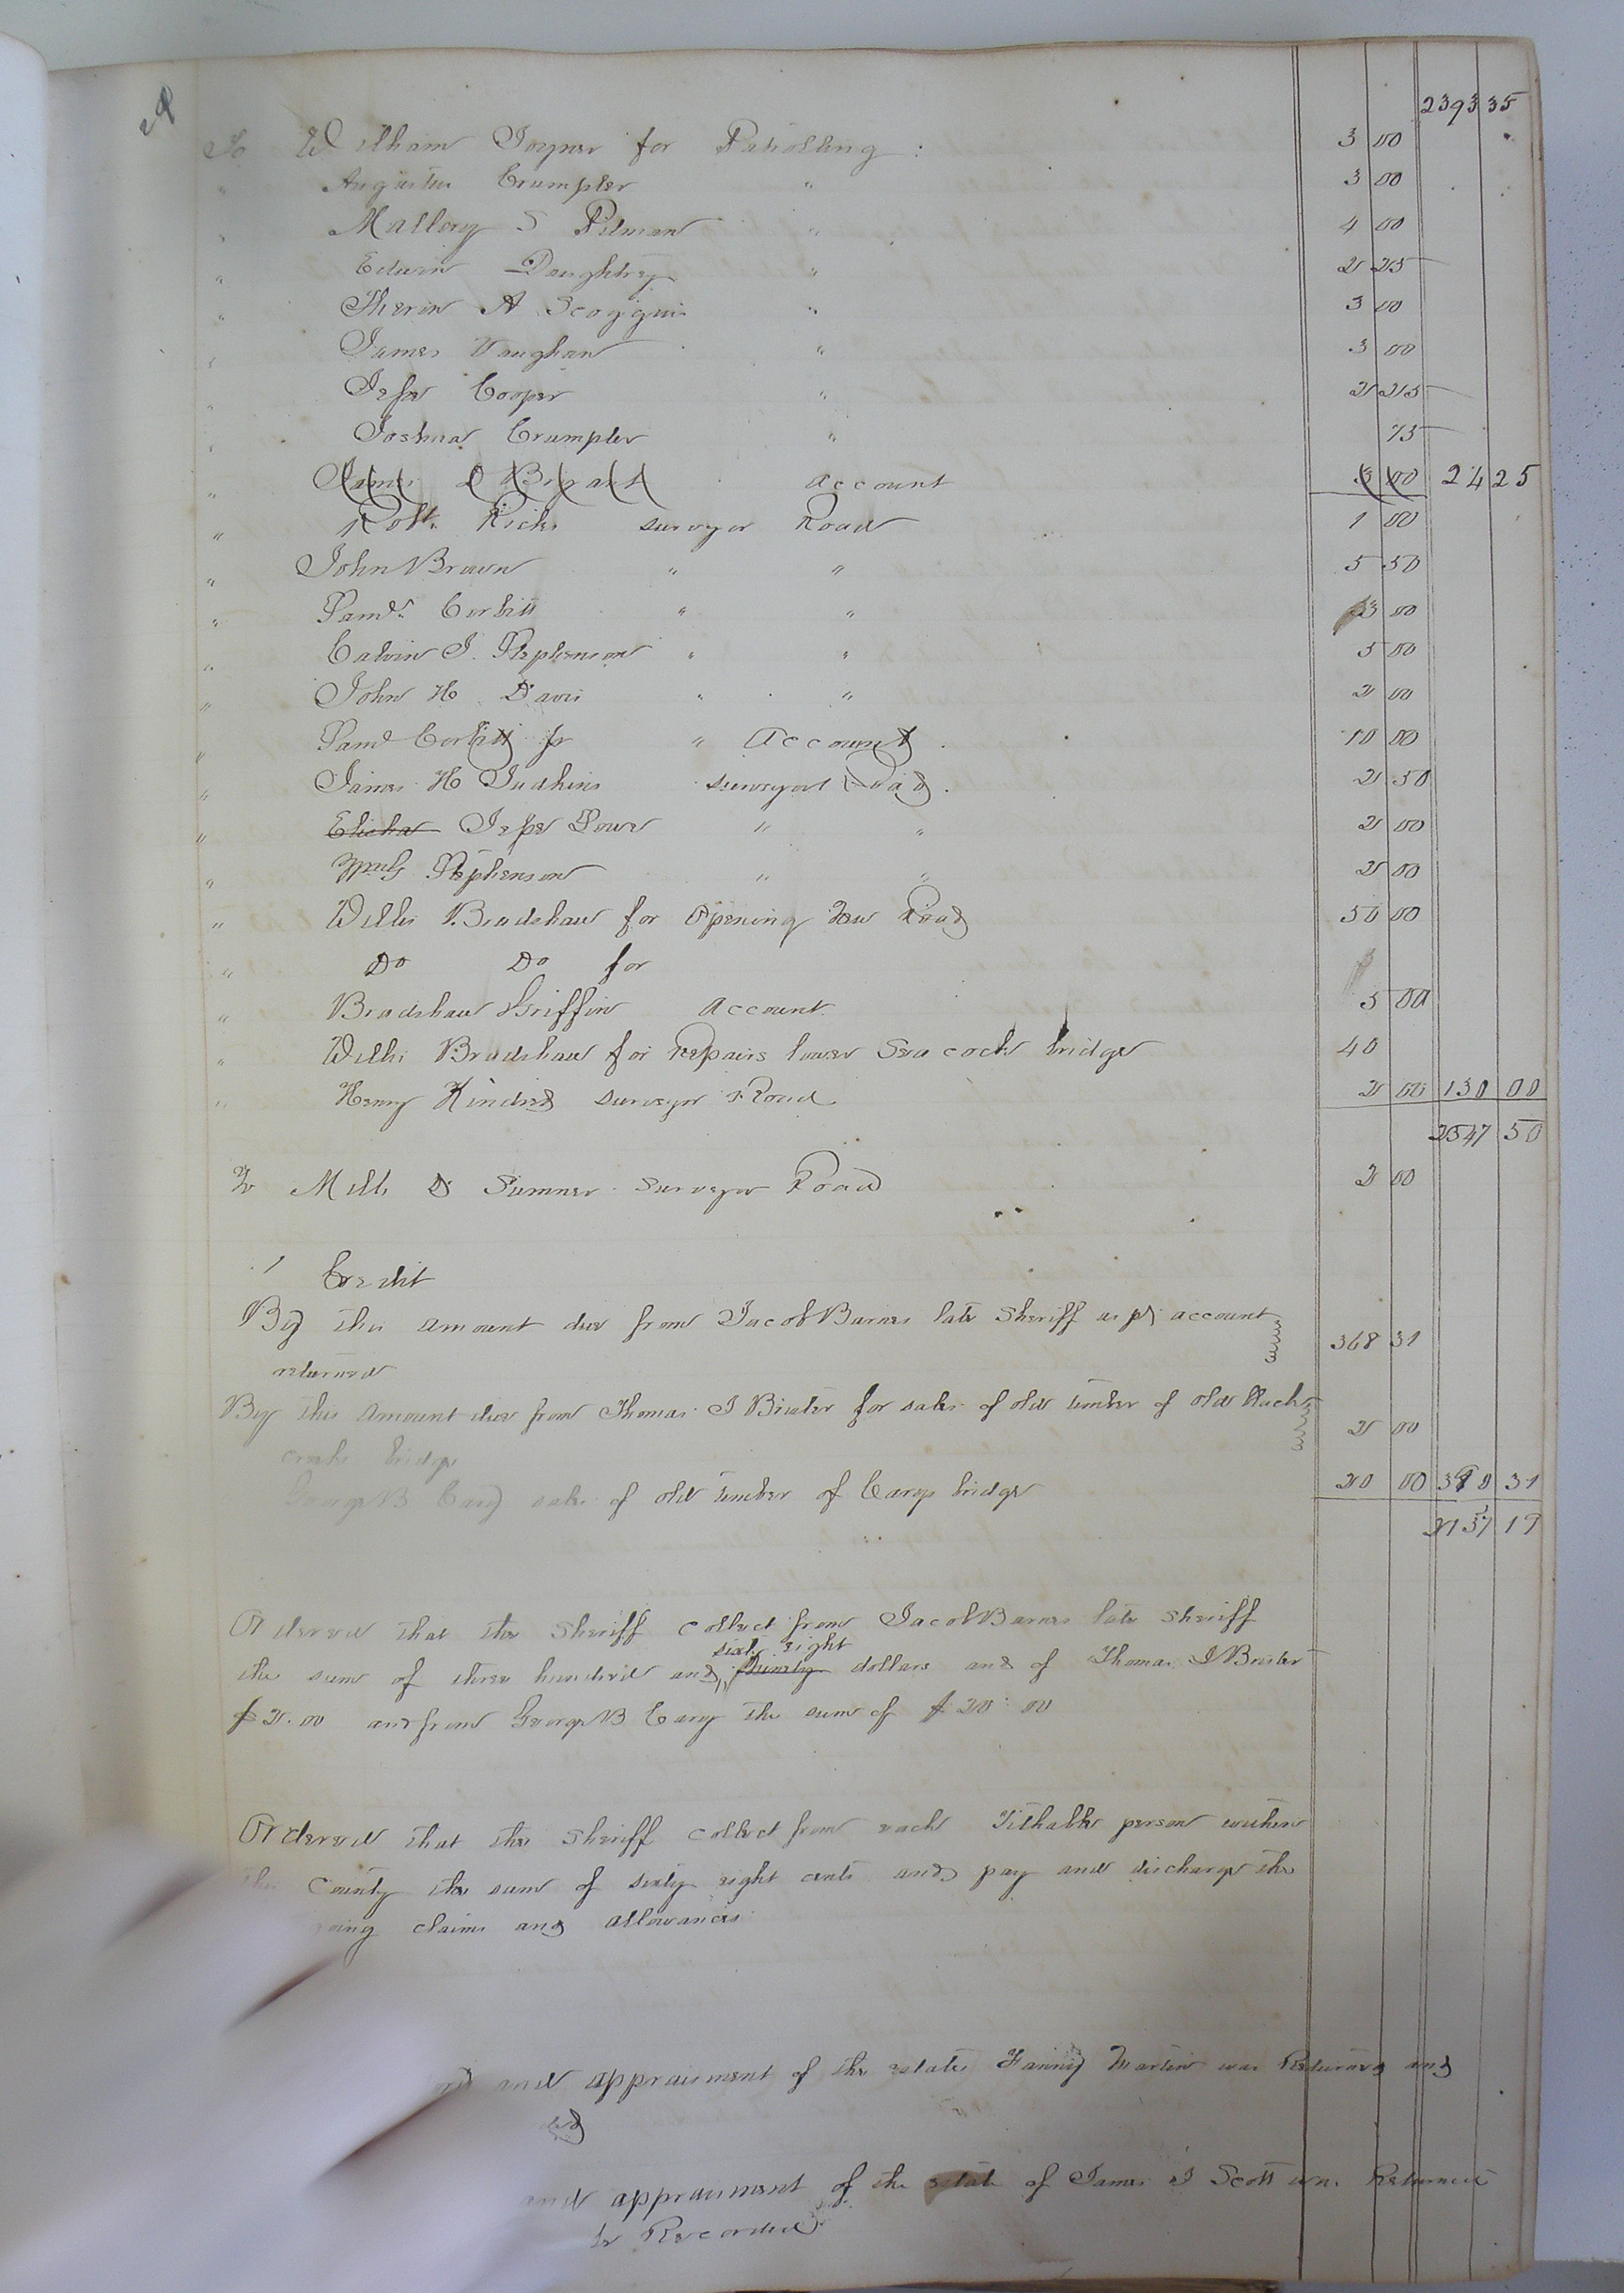 2393 35
To William Joyner for Patrolling : 3 00
" Augustus Crumpler " 3 00
" Mallory S Pitman " 4 00
" Edwin Daughtrey " 2 25
" A Scoggin " 3 00
" James Vaughan " 3 00
" Jesse Cooper " 2 25
" Joshua Crumpler " 75
" account 3 00 24 25
" Robt. Ricks surveyor Road 1 00
" John Brown " " 5 50
" Saml. Corbitt " " 3 00
" Calvin J. Stephenson " " 5 00
" John H Davis " " 2 00
" Saml Corbitt jr " Account 10 00
" James H Judkins surveyor Road 2 50
" Elisha Jesse " " 2 00
" Stephenson " " 2 00
" Willis Bradshaw for opening new Road 50 00
" Do Do for
" Bradshaw Griffin account 5 00
" Willis Bradshaw for repairs lower Seacock bridge 40
" Henry Kindred surveyor Road 2 00 130 00
2547 50
To Mills D Sumner surveyor Road 2 00
Credit
By this amount due from Jacob Barnes late Sheriff as pr account 368 31
returned
By this amount due from Thomas J Brister for sales of old timber of old 2 00
creek bridge
George B Cary sale of old timber of Carys bridge 20 00 390 31
2157 19
Ordered that the Sheriff collect from Jacob Barnes late Sheriff
sixty eight
the sum of three hundred and ninety dollars and of Thomas J Brister
$2.00 and from George B Cary the sum of $20.00
Ordered that the Sheriff collect from each Tithable person within
the County the sum of sixty eight cents and pay and discharge the
going claims and allowances
and appraisment of the estate Fanny Martin was Returned and
ed
and appraisment of the estate of James J Scott was Returned
to Recorded